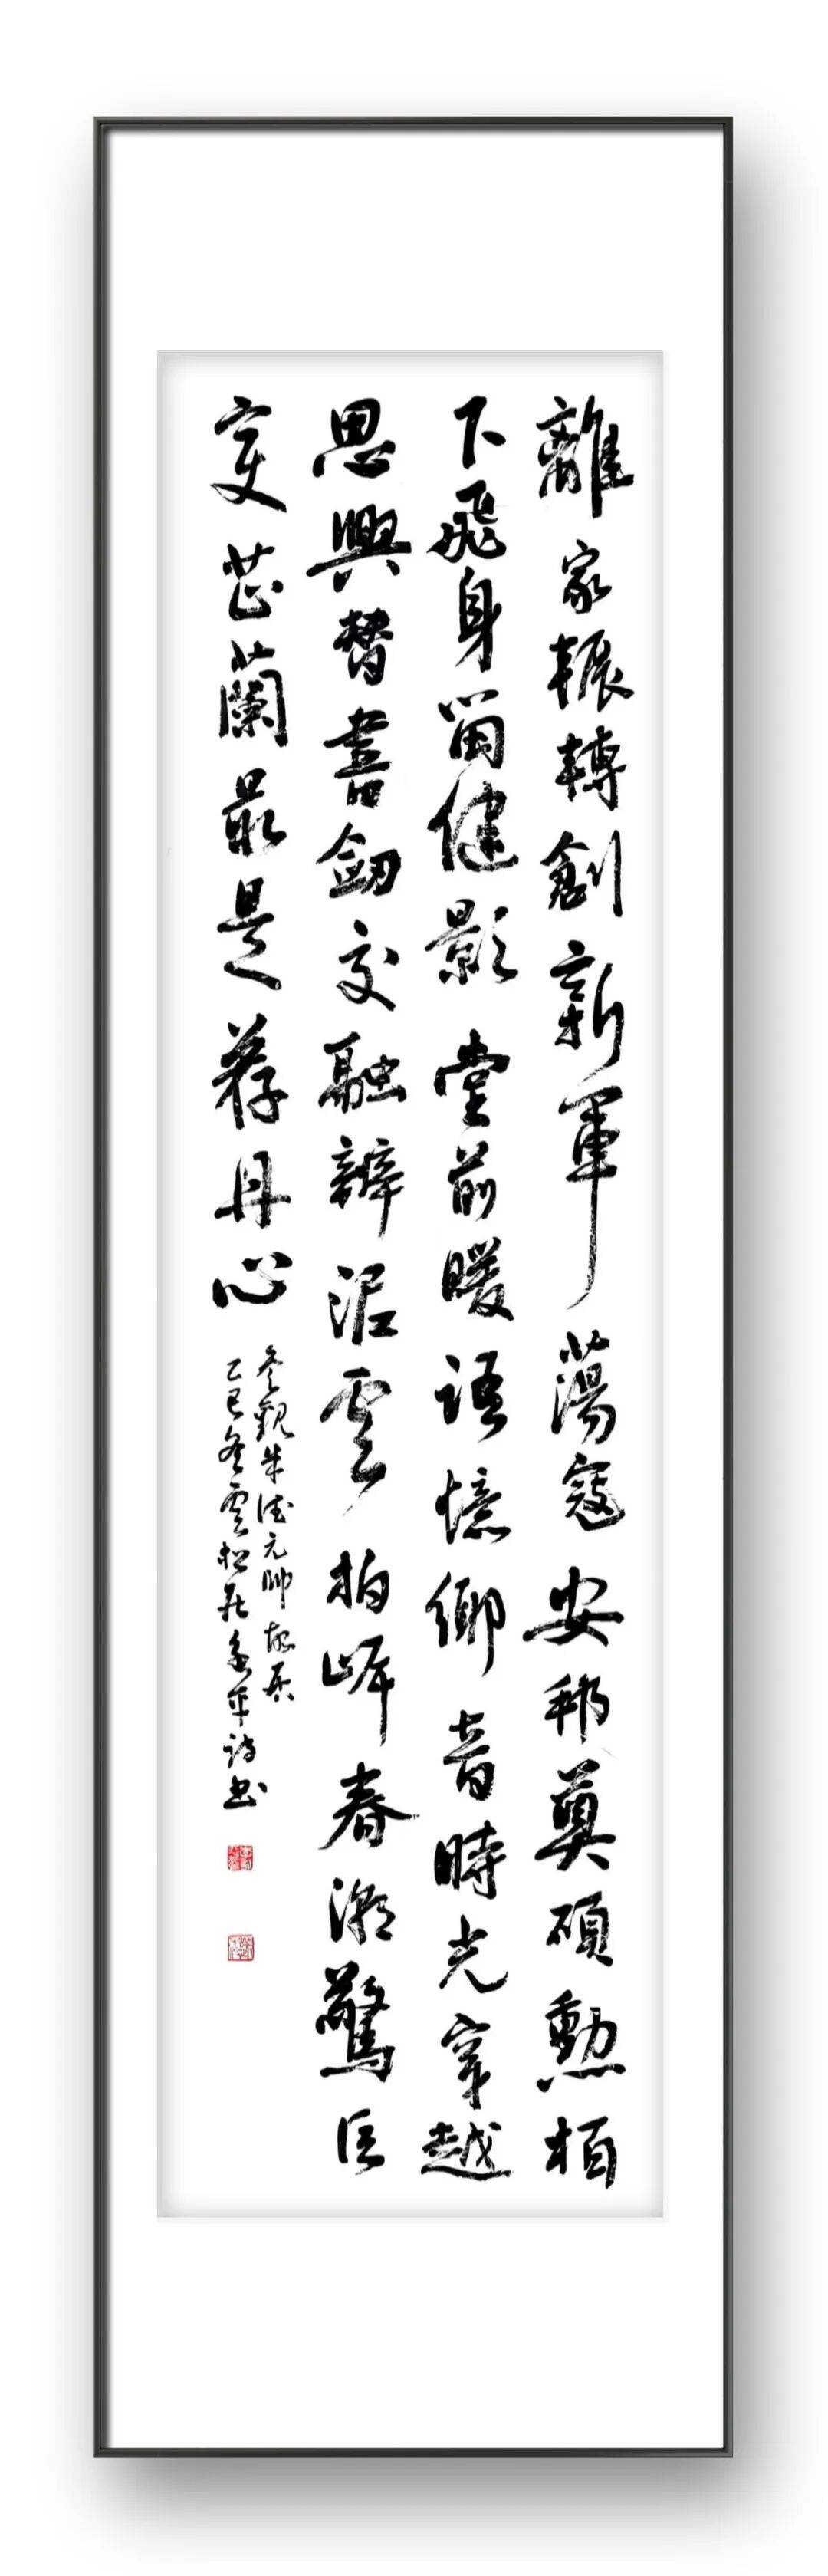 離家輾轉創新軍蕩寇安邦奠碩勳柏
下飛身留健影堂前暖語憶鄉音時光穿越
思興替書劍交融辨泥雲拍岸春潮驚巨
變芷蘭最是荐丹心
參觀朱德元帥故居
乙巳冬雲松
平詩書